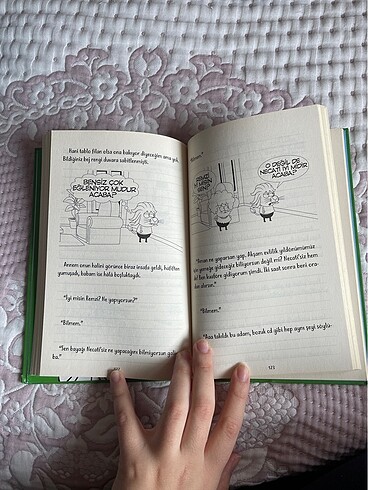 Hani tablo filan olsa ona bakıyor diyeceğim ama yok.
Bildiğiniz bej rengi duvara sabitlenmişti.
BENSİZ ÇOK
EĞLENİYOR MUDUR
ACABA?
Annem onun halini görünce biraz insafa geldi, hafiften
yumuşadı, babam ise hâlâ boşluktaydı.
"İyi misin Remzi? Ne yapıyorsun?"
"Bilmem."
"Sen bayağı Necati'siz ne yapacağını bilmiyorsun
ba."
"Bilmem."
O DEĞİL DE
NECATİ İYİ MİDİR
ACABA?
ne yaparsan yap. Akşam evlilik yıldönümümüz
yemeğe gideceğiz biliyorsun değil mi? Necati'siz hem
ben kuaföre gidiyorum şimdi. İki saat sonra beni
"Bilmem."
takıldı bu adam, bozuk cd gibi hep aynı şeyi söylü-
123